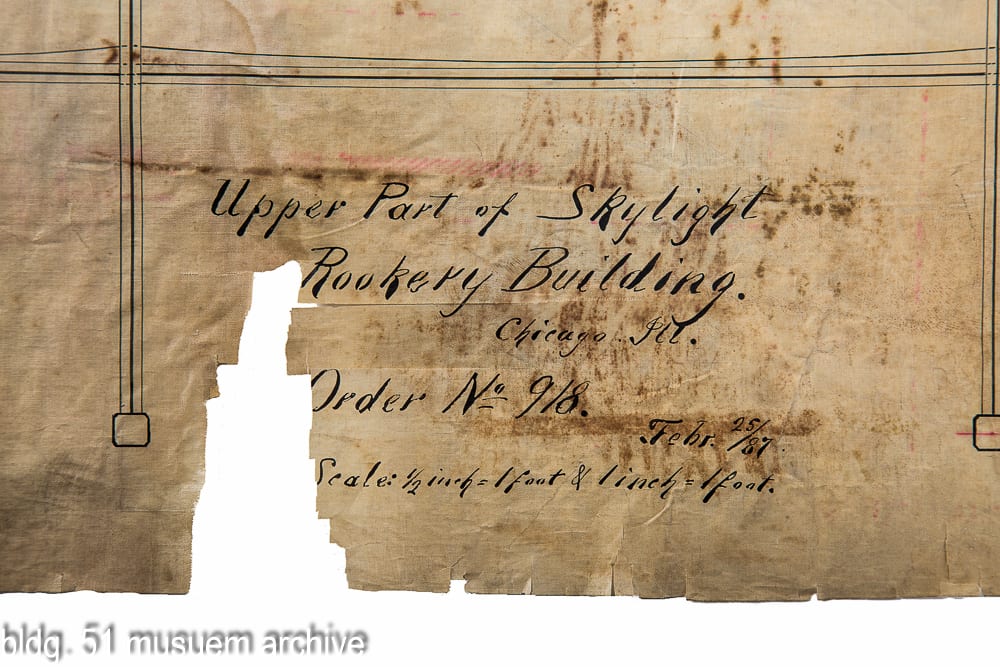 Upper Part of Skylight
Rookery Building.
Chicago Ill.
Order No 918.
Febr. 25/87.
Scale: 1/2 inch = 1 foot & 1 inch = 1 foot.
bldg. 51 musuem archive